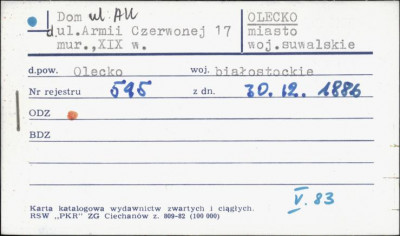 Dom ul. AK
ul.Armii Czerwonej 17
mur.,XIX w.
OLECKO
miasto
woj.suwalskie
d.pow. Olecko woj. białostockie
Nr rejestru 595 z dn. 30.12.1886
ODZ
BDZ
Karta katalogowa wydawnictw zwartych i ciągłych.
RSW „PKR" ZG Ciechanów z. 809-82 (100 000)
V. 83